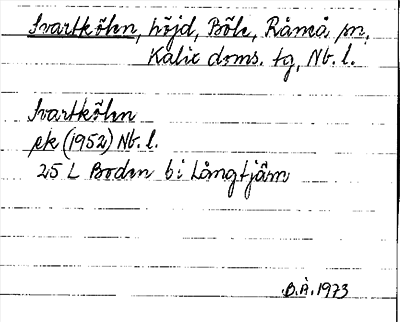 Svartkölen, höjd, Böle, Råneå sn,
Kalix doms. tg, Nb. l.
Svartkölen
ek (1952) Nb. l.
25 L Boden b i Långtjärn
B.Å. 1973